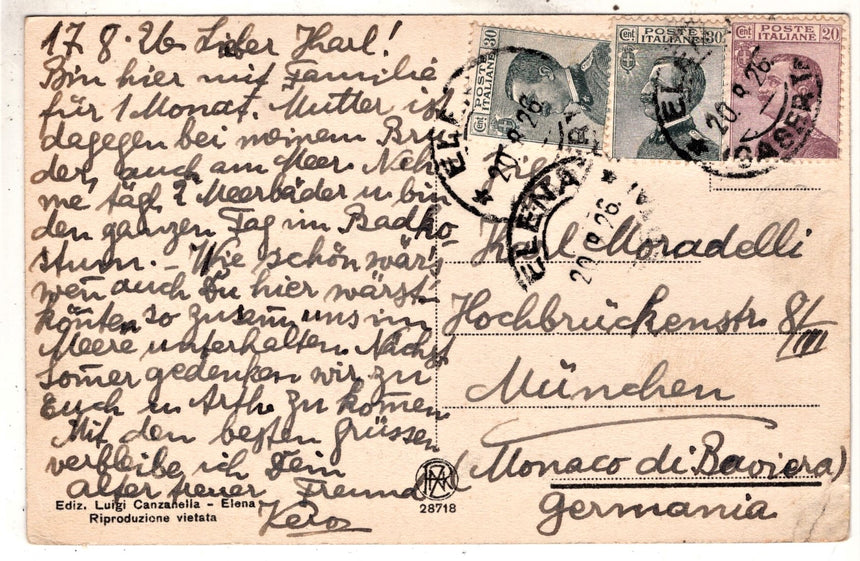 17.8.26 Lieber Karl!
Bin hier mit Familie
für 1 Monat. Mutter ist
dagegen bei meinem Bru
der, auch am Meer. Neh
me tägl 2 Meerbäder u. bin
den ganzen Tag im Badko-
stum. – Wie schön wär's
wen̄ auch Du hier wärst
kön̄ten so zusam̄ uns im
Meere unterhalten. Nächst
Som̄er gedenken wir zu
Euch in Arthe zu kom̄en
Mit den besten Grüssen
verbleibe ich Dein
alter treuer Freund
Ediz. Luigi Canzanella - Elena
Riproduzione vietata
28718
Cent 30 POSTE ITALIANE
POSTE ITALIANE Cent 30
Cent POSTE ITALIANE 20
ELENA
20.8.26
CASERTA
Karl Moradelli
Hochbrückenstr. 8/III
München
(Monaco di Baviera)
Germania